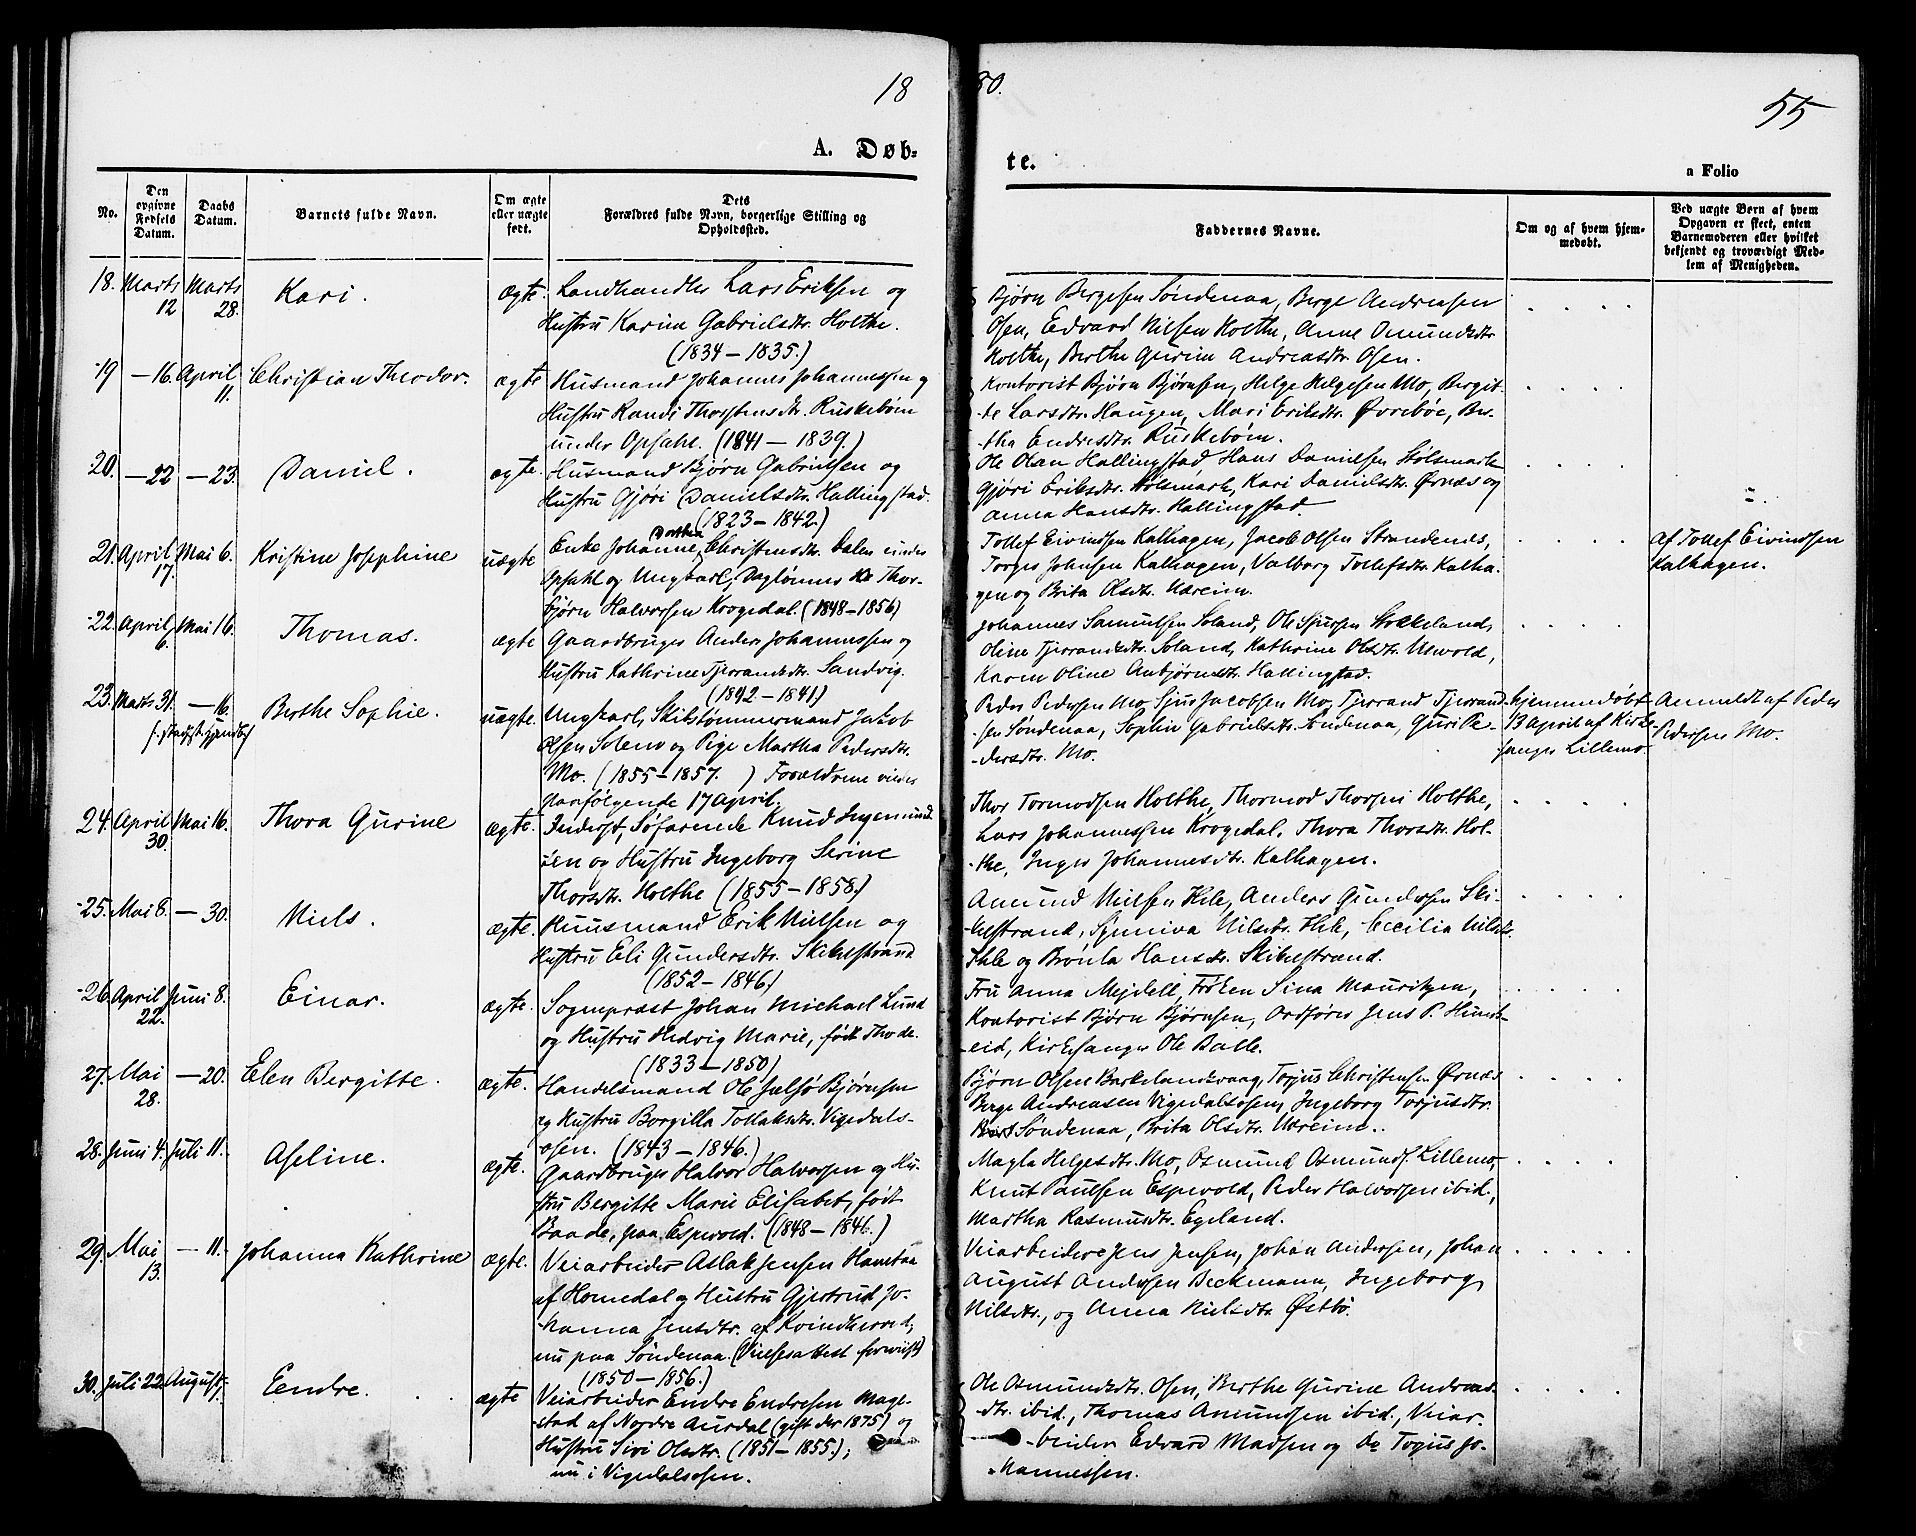 18
80.
55
A. Døb-
te.
a Folio
No.
Den opgivne Fødsels Datum.
Daabs Datum.
Barnets fulde Navn.
Om ægte eller uægte født.
Dets Forældres fulde Navn, borgerlige Stilling og Opholdssted.
Faddernes Navne.
Om og af hvem hjem-
medøbt.
Ved uægte Børn af hvem
Opgaven er skeet, enten
Barnemoderen eller hvilket
bekjendt og troværdigt Med-
lem af Menigheden.
18. Marts 12 Marts 28. Kari. ægte. Landhandler Lars Eriksen og
Hustru Karine Gabrielsdtr. Holthe.
(1834 – 1835.)
Bjørn Bergesen Søndenaa, Berge Andreasen
Osen, Edvard Nilsen Holthe, Anne Omundsdtr.
Holthe, Berthe Gurine Andreasdtr. Osen.
19 – 16. April 11. Christian Theodor. ægte Husmand Johannes Johannessen og
Hustru Randi Thorstensdtr. Ruskebøen
under Opsahl. (1841 – 1839.)
Kontorist Bjørn Bjørnsen, Helge Helgesen Mo, Bergit-
te Larsdtr. Haugen, Mari Eriksdtr. Øvrebøe, Ber-
tha Endresdtr. Ruskebøen.
20. – 22 – 23. Daniel. ægte. Husmand Bjørn Gabrielsen og
Hustru Gjøri Danielsdtr. Hallingstad.
(1823 – 1842.)
Ole Olsen Hallingstad, Hans Danielsen Stølsmark
Gjøri Eriksdtr. Stølsmark, Kari Danielsdtr. Ørnæs og
Anna Hansdtr. Hallingstad
21. April 17. Mai 6. Kristine Josephine uægte Enke Johanne Dorthea Christensdtr. Dalen under
Opsahl og Ungkarl, Daglønner Thor-
bjørn Halvorsen Krogedal. (1848 – 1856)
Tollef Eivindsen Kalhagen, Jacob Olsen Strandenes,
Torger Johnsen Kalhagen, Valborg Tollefsdtr. Kalha-
gen og Brita Olsdtr. Ureim.
af Tollef Eivindsen
Kalhagen.
22. April 6. Mai 16. Thomas. ægte Gaardbruger Anders Johannessen og
Hustru Kathrine Tjerandsdtr. Sandvig.
(1842 – 1841)
Johannes Samuelsen Soland, Ole Sjursen Stokkeland,
Oline Tjerrandsdtr. Soland, Kathrine Olsdtr. Usvold,
Karen Oline Anbjørnsdtr. Hallingstad.
23. Marts 31. – 16. Berthe Sophie. uægte. Ungkarl, Skibstømmermand Jakob
Olsen Solem og Pige Martha Pedersdtr.
Mo. (1855 – 1857. ) Forældrene viedes
paafølgende 17 April.
Peder Pedersen Mo, Sjur Jacobsen Mo, Tjerrand Tjerrand-
sen Søndenaa, Sophie Gabrielsdtr. Søndenaa, Guri Pe-
dersdtr. Mo.
hjemmedøbt
13 April af Kirke-
sanger Lillemo.
Anmeldt af Peder
Pedersen Mo.
24. April 30. Mai 16. Thora Gurine ægte. Inderst, Søfarende Knud Ingemund-
sen og Hustru Ingeborg Serine
Thorsdtr. Holthe (1855 – 1858.)
Thor Tormodsen Holthe, Thormod Thorsen Holthe,
Lars Johannessen Krogedal, Thora Thorsdtr. Hol-
the, Inger Johannesdtr. Kalhagen.
25. Mai 8. – 30. Niels. ægte. Huusmand Erik Nielsen og
Hustru Eli Gundersdtr. Skikelstrand
(1852 – 1846.)
Amund Nielsen Ihle, Anders Gundersen Ski-
kelstrand, Synniva Nilsdtr. Ihle, Cecilia Nilsdtr.
Ihle og Brønla Hansdtr. Skikelstrand.
26. April 22. Juni 8. Einar. ægte. Sognepræst Johan Michael Lund
og Hustru Hedvig Marie, født Thode.
(1833 – 1850)
Fru Anna Mejdell, Frøken Sina Mauritzen,
Kontorist Bjørn Bjørnsen, Ordfører Jens P. Hunds-
eid, Kirkesanger Ole Balle.
27. Mai 28. – 20. Elen Bergitte. ægte. Handelsmand Ole Jælsø Bjørnsen
og Hustru Borgilla Tollaksdtr. Vigedals-
osen. (1843 – 1846.)
Bjørn Olsen Barkelandsvaag, Torjus Christensen Ørnæs
Berge Andreasen Vigedalsosen, Ingeborg Torjusdtr.
Søndenaa, Brita Olsdtr. Ureim.
28. Juni 4. Juli 11. Aseline. ægte. Gaardbruger Halvor Halvorsen og Hu-
stru Bergitte Marie Elisabet, født
Baade, paa Espevold. (1848 – 1846.)
Magla Helgesdtr. Mo, Osmund Osmunds. Lillemo,
Knut Paulsen Espevold, Peder Halvorsen ibid.,
Martha Rasmusdtr. Egeland.
29. Mai 13. – 11. Johanna Kathrine ægte. Veiarbeider Aslak Jensen Hamraa
af Homedal og Hustru Gjertrud Jo-
hanna Jensdtr. af Kvindherred,
nu paa Søndenaa. (Vielsesattest forevist)
(1850 – 1856.)
Veiarbeidere Jens Jensen, Johan Andersen, Johan
August Andersen Beckmann, Ingeborg
Nilsdtr., og Anna Nielsdtr. Østbø.
30. Juli 22. August 1. Eendre. ægte Veiarbeider Endre Endresen Mage-
stad af Nordre Aurdal (gift der 1875) og
Hustru Siri Olsdtr. (1851 – 1855.);
nu i Vigedalsosen.
Ole Osmundsdtr. Osen, Berthe Gurine Andreas-
dtr. ibid., Thomas Amundsen ibid., Veiar-
beider Edvard Madsen og do Torjus Jo-
hannessen.